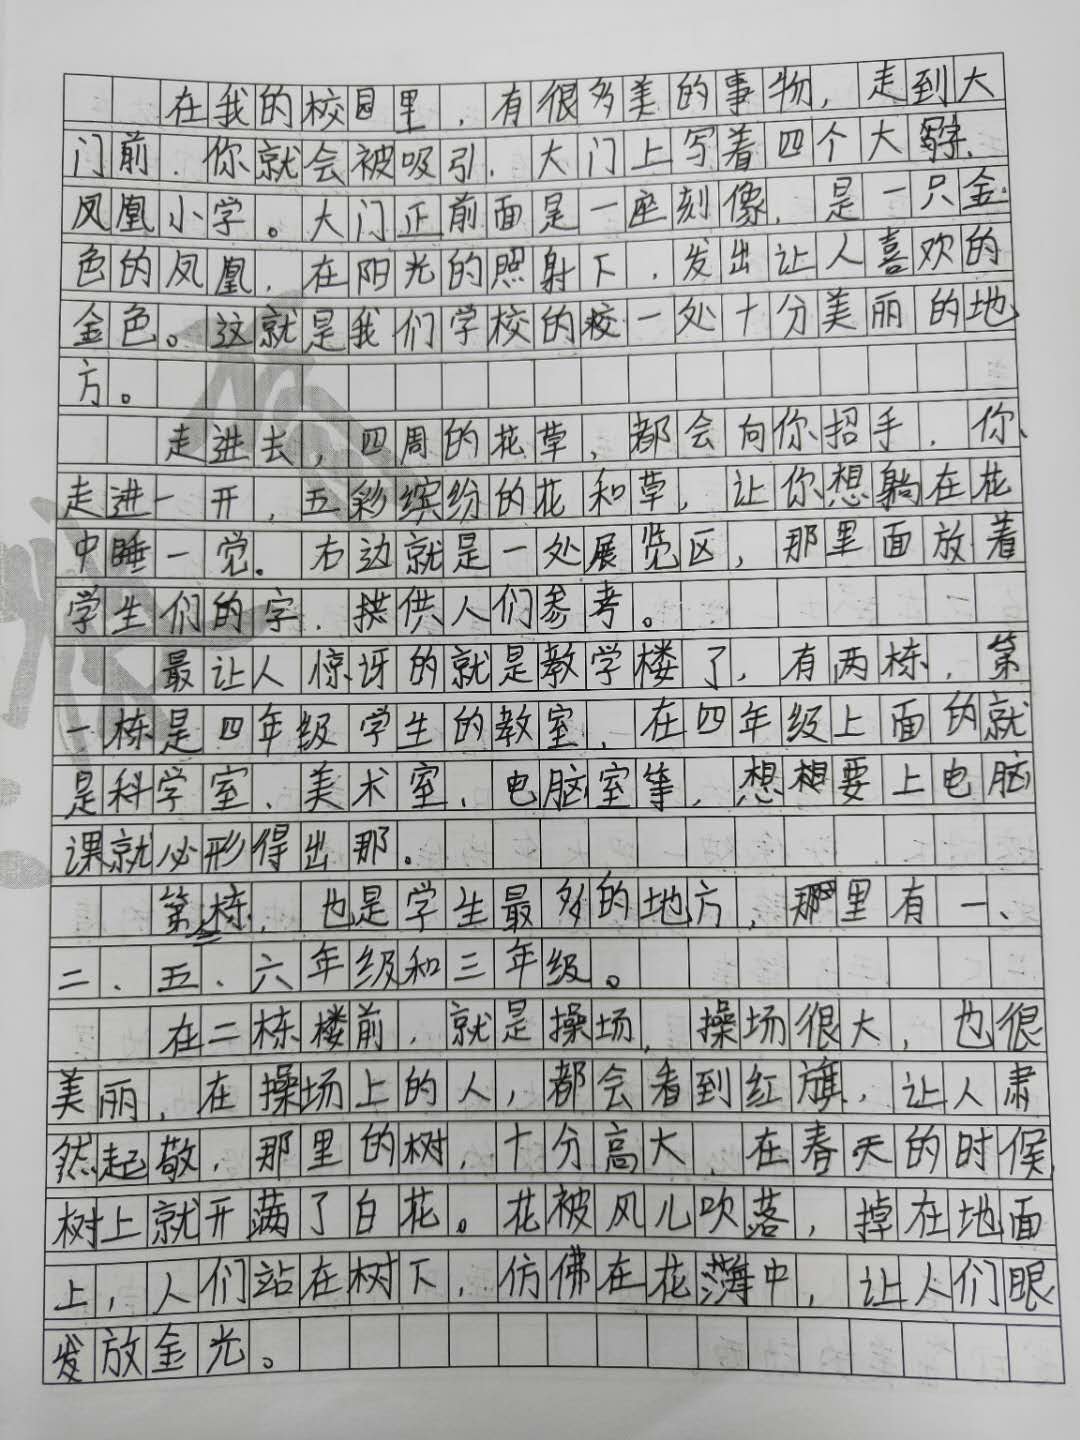 在我的校园里，有很多美的事物，走到大
门前、你就会被吸引，大门上写着四个大字、
凤凰小学。大门正前面是一座刻像，是一只金
色的凤凰，在阳光的照射下，发出让人喜欢的
金色。这就是我们学校的一处十分美丽的地
方。
走进去，四周的花草，都会向你招手，你
走进一开，五彩缤纷的花和草，让你想躺在花
中睡一觉。右边就是一处展览区，那里面放着
学生们的字，供人们参考。
最让人惊讶的就是教学楼了，有两栋，第
一栋是四年级学生的教室，在四年级上面的就
是科学室、美术室、电脑室等，想想要上电脑
课就必形得出那。
第二栋，也是学生最多的地方，那里有一、
二、五、六年级和三年级。
在二栋楼前，就是操场，操场很大，也很
美丽，在操场上的人，都会看到红旗，让人肃
然起敬，那里的树，十分高大，在春天的时候，
树上就开满了白花。花被风儿吹落，掉在地面
上，人们站在树下，仿佛在花中，让人们眼
发放金光。